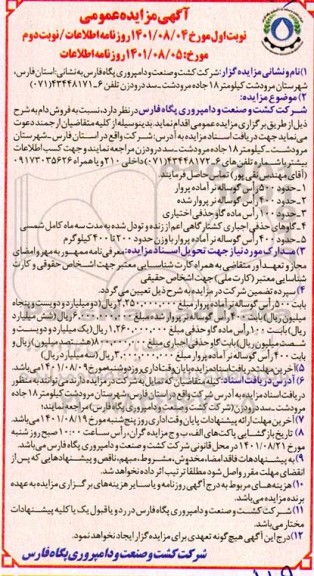 آگهی مزایده عمومی
نوبت اول مورخ ۱۴۰۱/۰۸/۰۴ روزنامه اطلاعات / نوبت دوم
مورخ: ۱۴۰۱/۰۸/۰۵ روزنامه اطلاعات
۱) نام و نشانی مزایده گزار: شرکت کشت و صنعت و دامپروری پگاه فارس به نشانی: استان فارس،
شهرستان مرودشت کیلومتر ۱۸ جاده مرودشت ـ سد درودزن تلفن ۶ـ۴۳۴۴۸۱۷۱(۰۷۱)
۲) موضوع مزایده:
شرکت کشت و صنعت و دامپروری پگاه فارس در نظر دارد، نسبت به فروش دام به شرح
ذیل از طریق برگزاری مزایده عمومی اقدام نماید. بدینوسیله از کلیه متقاضیان ارجمند دعوت
می نماید جهت دریافت اسناد مزایده به آدرس: شرکت واقع در استان فارس ـ شهرستان
مرودشت ـ کیلومتر ۱۸ جاده مرودشت ـ سد درودزن مراجعه نمایند و جهت کسب اطلاعات
بیشتر با شماره تلفن های ۶ـ۴۳۴۴۸۱۷۲(۰۷۱) داخلی ۲۱۰ و یا همراه ۰۹۱۷۳۰۳۵۶۲۶
(آقای مهندس تقی پور) تماس حاصل فرمایند.
۱ـ حدود ۵۰۰ رأس گوساله نر آماده پروار
۲ـ حدود ۴۰۰ رأس گوساله نر پروار شده
۳ـ حدود ۱۰۰ رأس ماده گاو حذفی اختیاری
۴ـ گاوهای حذفی اجباری کشتارگاهی اعم از زنده و تودل به مدت سه ماه کامل شمسی
۵ـ حدود ۴۰۰ رأس گوساله نر آماده پروار با وزن حدود ۲۰۰ تا ۴۰۰ کیلوگرم
۳) مدارک مورد نیاز جهت تحویل اسناد مزایده: معرفی نامه ممهور به مهر و امضای
مجاز و تعهدآور متقاضی به همراه کارت شناسایی معتبر جهت اشخاص حقوقی و کارت
شناسایی معتبر (کارت ملی) جهت اشخاص حقیقی
۴) سپرده تضمین شرکت در مزایده به شرح ذیل تعیین می گردد.
بابت ۵۰۰ رأس گوساله نر آماده پروار مبلغ ۲.۲۵۰.۰۰۰.۰۰۰ ریال (دو میلیارد و دویست و پنجاه
میلیون ریال) بابت ۴۰۰ رأس گوساله نر پروار شده مبلغ ۶.۰۰۰.۰۰۰.۰۰۰ ریال (شش میلیارد
ریال) بابت ۱۰۰ رأس ماده گاو حذفی مبلغ ۱.۲۶۰.۰۰۰.۰۰۰ ریال (یک میلیارد و دویست و
شصت میلیون ریال) بابت گاو حذفی اجباری مبلغ ۱.۸۰۰.۰۰۰.۰۰۰ (هشتصد میلیون) ریال و
بابت ۴۰۰ رأس گوساله نر آماده پروار مبلغ ۳.۰۰۰.۰۰۰.۰۰۰ ریال (سه میلیارد ریال)
۵) آخرین مهلت دریافت اسناد مزایده پایان وقت اداری روز دوشنبه مورخ ۱۴۰۱/۰۸/۰۹ می باشد.
۶) آدرس دریافت اسناد: کلیه متقاضیان که تمایل به شرکت در مزایده دارند می توانند به منظور
دریافت اسناد مزایده به آدرس شرکت واقع در استان فارس، شهرستان مرودشت کیلومتر ۱۸ جاده
مرودشت ـ سد درودزن (شرکت کشت و صنعت و دامپروری پگاه فارس) مراجعه نمایند؛
۷) آخرین مهلت ارائه پیشنهادات پایان وقت اداری روز پنج شنبه مورخ ۱۴۰۱/۰۸/۱۹ می باشد.
۸) تاریخ بازگشایی پاکت های الف، ب و ج مزایده گران، رأس ساعت ۱۰:۰۰ صبح روز شنبه
مورخ ۱۴۰۱/۰۸/۲۱ در محل قانونی شرکت کشت و صنعت و دامپروری پگاه فارس می باشد.
۹) به پیشنهادهای فاقد امضاء، مخدوش، مشروط، مبهم، ناقص و پیشنهادهایی که پس از
انقضای مهلت مقرر واصل شود مطلقا ترتیب اثر داده نخواهد شد.
۱۰) هزینه های مربوط به درج آگهی روزنامه و یا سایر هزینه های برگزاری مزایده به عهده
برنده مزایده می باشد.
۱۱) شرکت کشت و صنعت و دامپروری پگاه فارس در رد و یا قبول یک یا کلیه پیشنهادات
مختار می باشد.
۱۲) درج این آگهی هیچ گونه تعهدی برای مزایده گزار ایجاد نخواهد نمود.
شرکت کشت و صنعت و دامپروری پگاه فارس